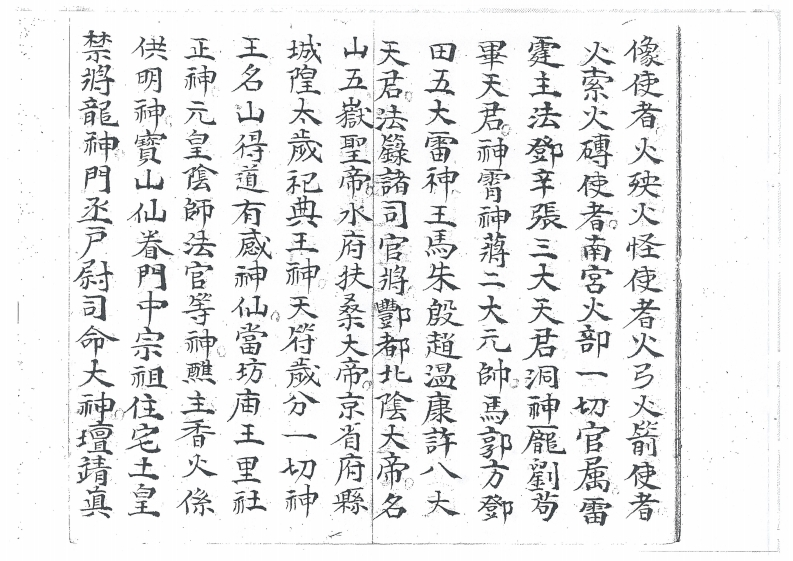 像使者火殃火怪使者火弓火箭使者
火索火磚使者南宮火部一切官屬雷
霆主法鄧辛張三大天君洞神龐劉苟
畢天君神霄神蔣二大元帥馬郭方鄧
田五大雷神王馬朱殷趙温康許八大
天君法籙諸司官將酆都北陰大帝名
山五嶽聖帝水府扶桑大帝京省府縣
城隍太歲祀典王神天符歲分一切神
王名山得道有感神仙當坊庙王里社
正神元皇陰師法官等神醮主香火係
供明神寳山仙眷門中宗祖住宅土皇
禁將龍神門丞戸尉司命大神壇靖真